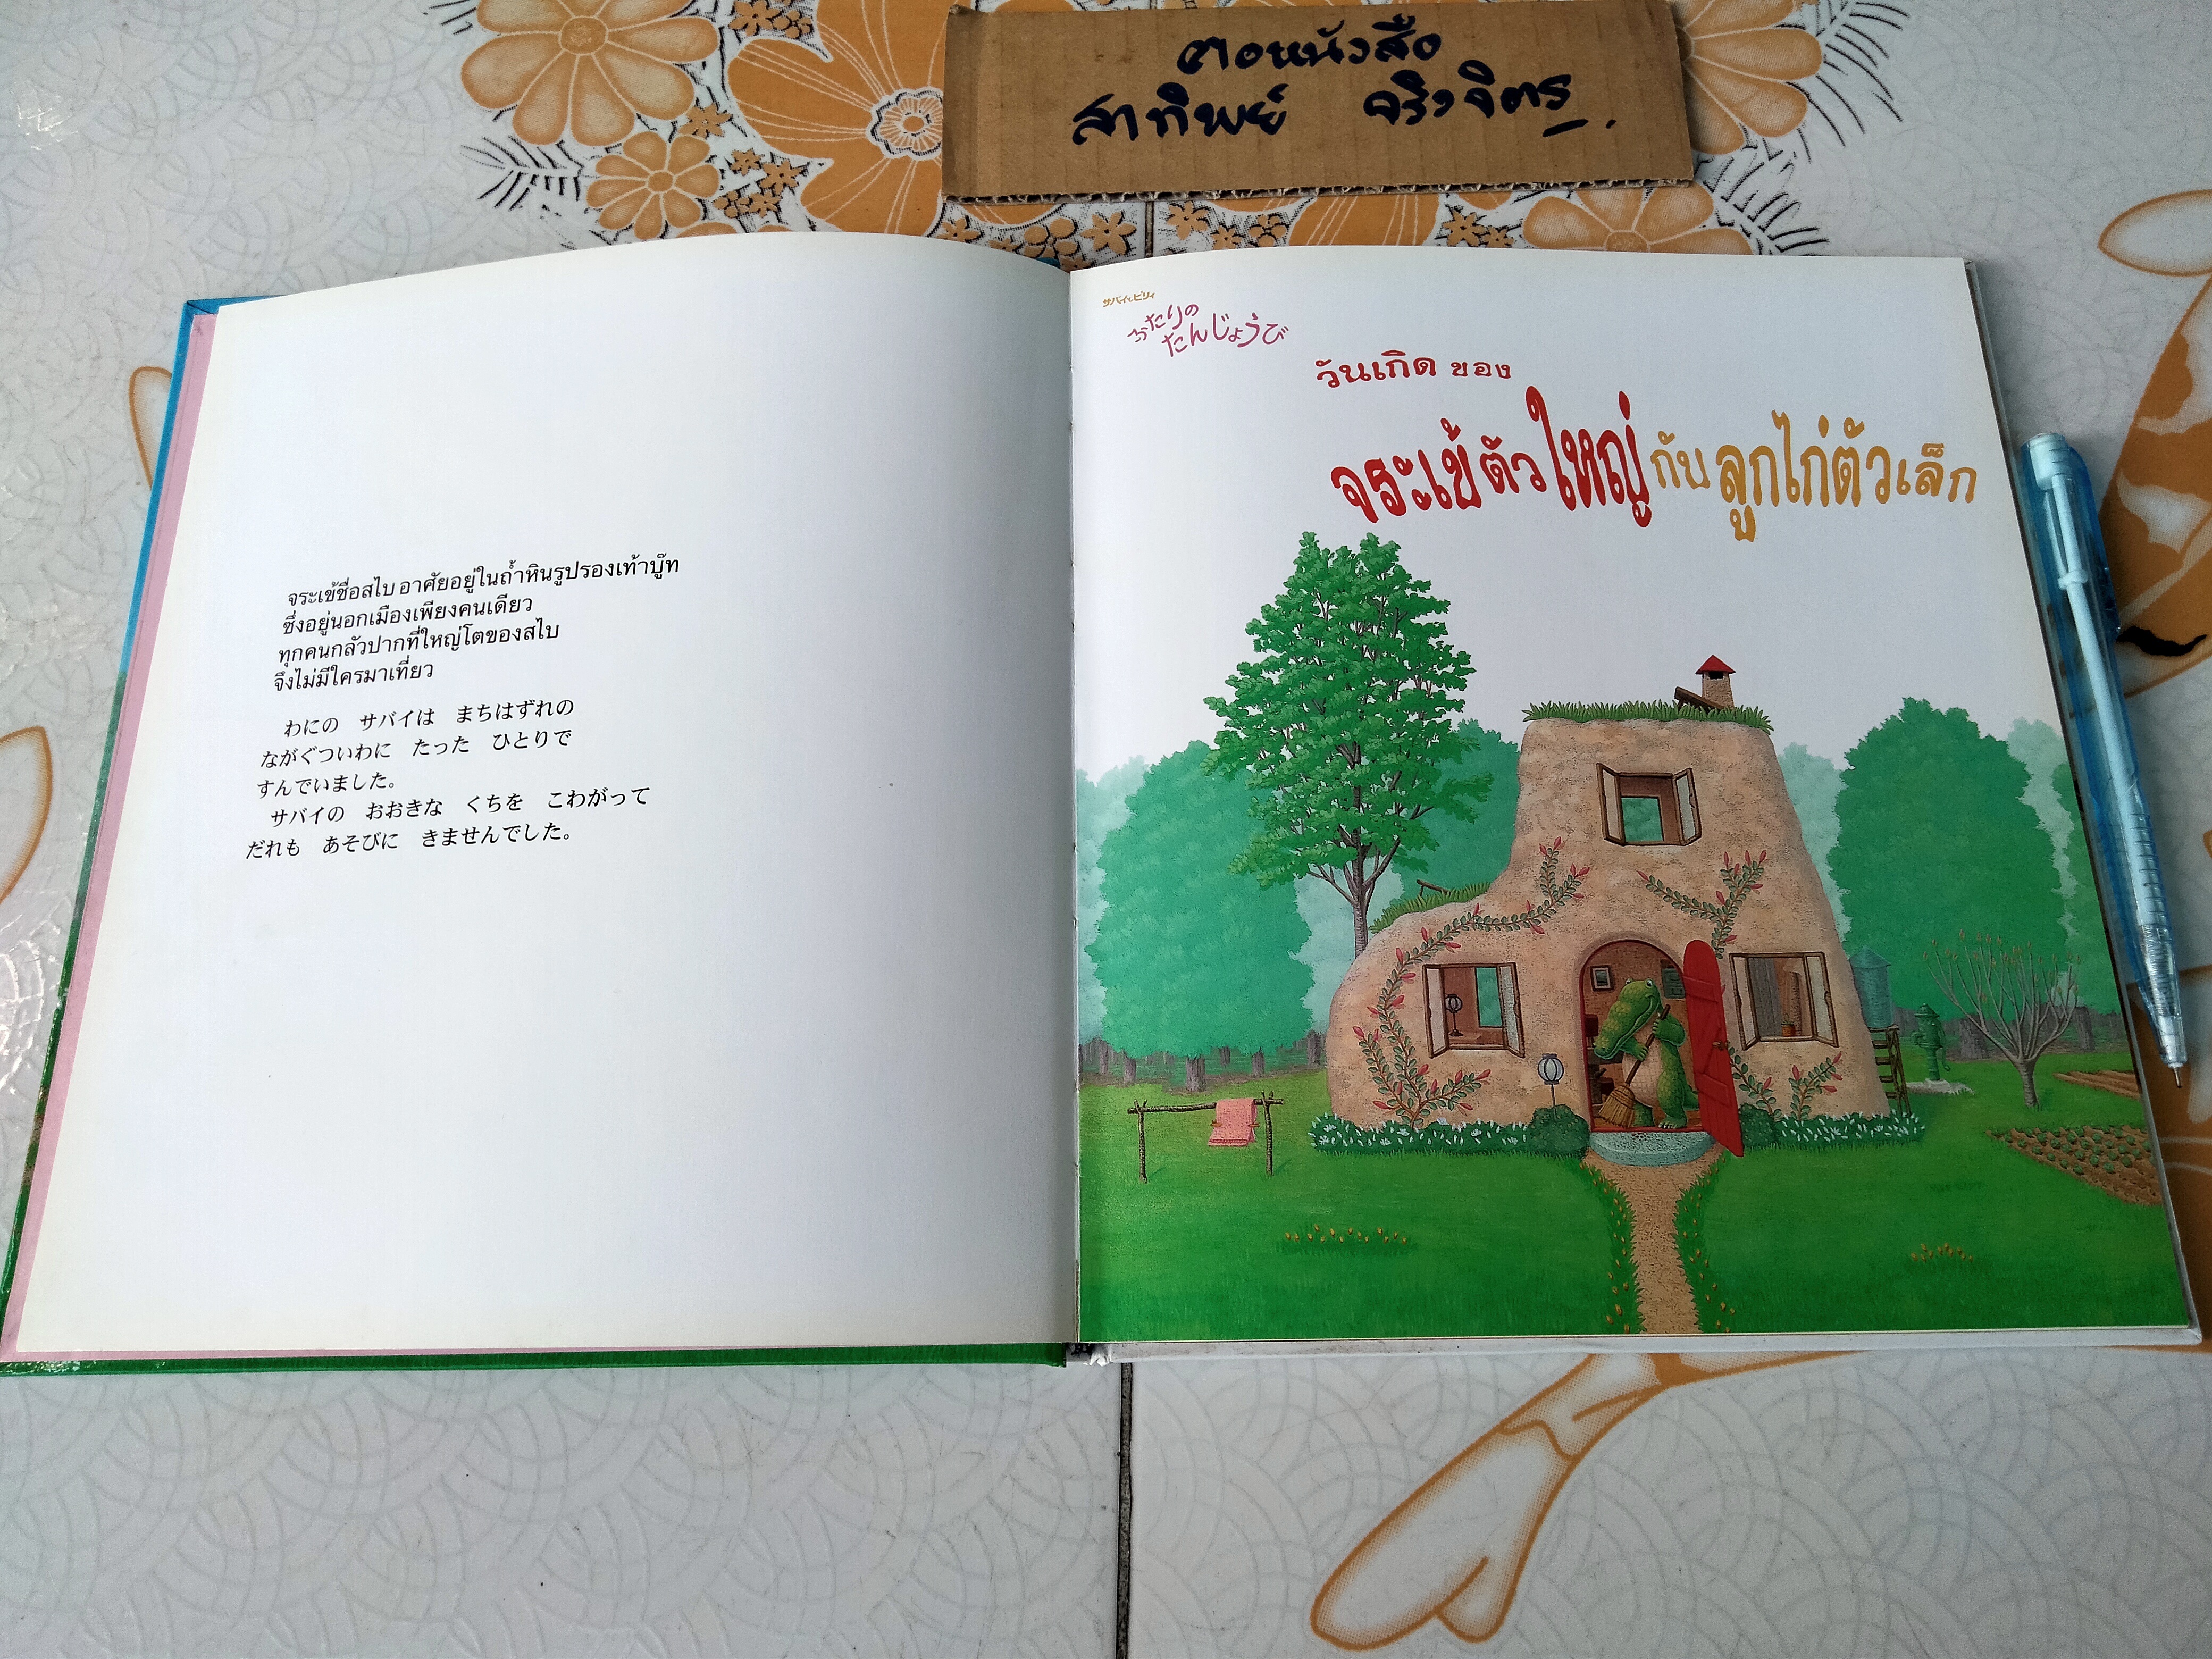 ตอหนังสือ
สาทิพย์ จริงจิตร
จระเข้ชื่อสไบ อาศัยอยู่ในถ้ำหินรูปรองเท้าบู๊ท
ซึ่งอยู่นอกเมืองเพียงคนเดียว
ทุกคนกลัวปากที่ใหญ่โตของสไบ
จึงไม่มีใครมาเที่ยว
わにの サバイは まちはずれの
ながぐついわに たった ひとりで
すんでいました。
サバイの おおきな くちを こわがって
だれも あそびに きませんでした。
サバイとピリィ
ふたりの
たんじょうび
วันเกิด ของ
จระเข้ตัวใหญ่กับลูกไก่ตัวเล็ก